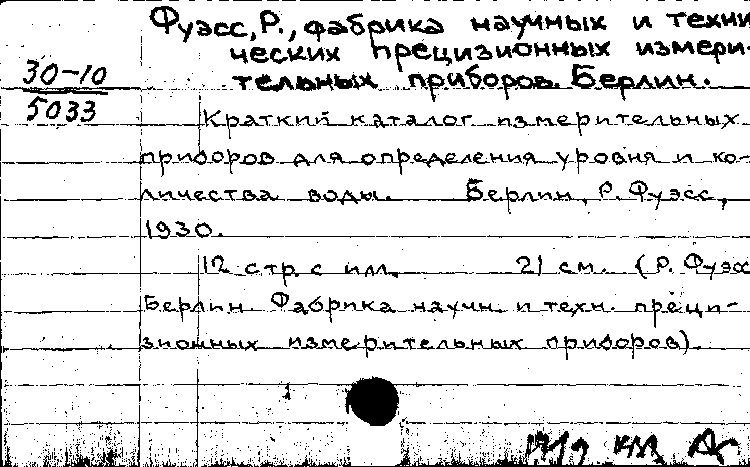 Фуэсс, Р., фабрика научных и техни
ческих прецизионных измери-
30-10
тельных приборов. Берлин.
5033
Краткий каталог измерительных
приборов для определения уровня и ко-
личества воды. Берлин, Р. Фуэсс,
1930.
12 стр. с илл. 21 см. (Р. Фуэсс
Берлин. Фабрика научн. и техн. преци-
зионных измерительных приборов).